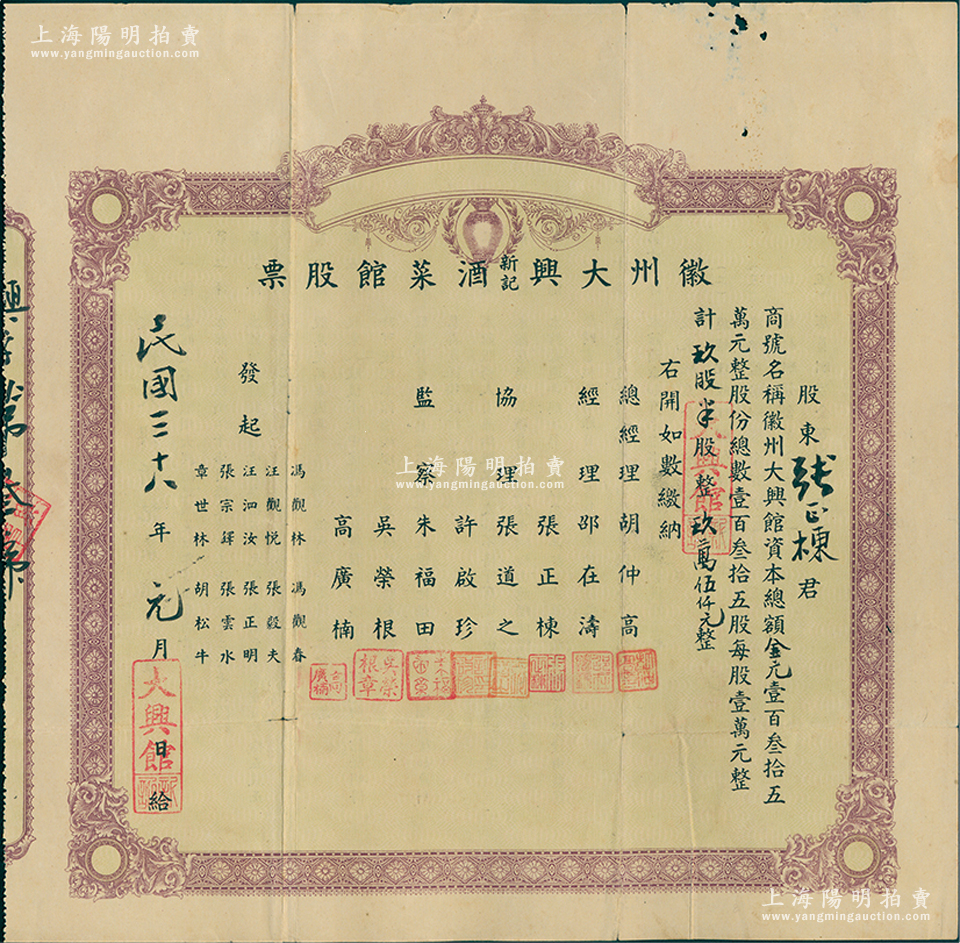 上海陽明拍賣
www.yangmingauction.com
徽州大興新記酒菜館股票
股東張正棟君
商號名稱徽州大興館資本總額金元壹百叁拾五
萬元整股份總數壹百叁拾五股每股壹萬元整
計玖股半股整玖萬伍仟元整
右開如數繳納
總經理胡仲高
經理邵在濤
張正棟
協理張道之
許啟珍
監察朱福田
吳榮根
高廣楠
發起
馮觀林 馮觀春
汪觀悦 張毅夫
汪泗汝 張正明
張宗鐸 張雲水
章世林 胡松牛
民國三十八年元月日給
大興館
大興館
吳榮根章
上海陽明拍賣
www.yangmingauction.com
上海陽明拍賣
www.yangmingauction.com